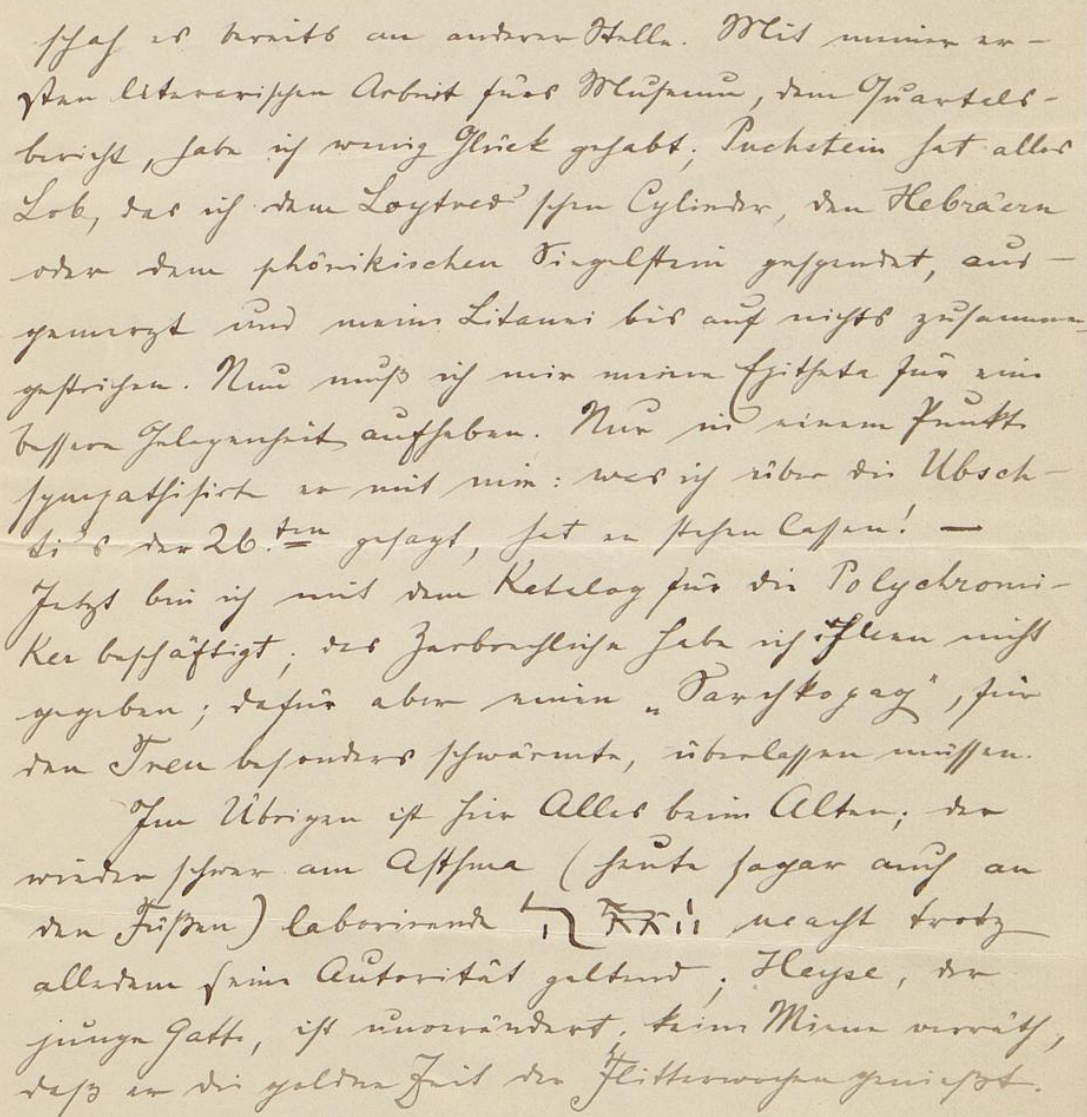 schah es bereits an anderer Stelle. Mit meiner er-
sten literarischen Arbeit fürs Museum, dem Quartals-
bericht, habe ich wenig Glück gehabt; Puchstein hat alles
Lob, das ich dem Loytved'schen Cylinder, den Hebräern
oder dem phönikischen Siegelstein gespendet, aus-
gemerzt und meine Litanei bis auf nichts zusammen-
gestrichen. Nun muß ich mir meine Epitheta für eine
bessere Gelegenheit aufheben. Nur in einem Punkte
sympathisirte er mit mir: was ich über die Uba​sch-
ti's der 26.ten gesagt, hat er stehen lassen! —
Jetzt bin ich mit dem Katalog für die Polychromi-
ker beschäftigt; das Zerbrechliche habe ich ihnen nicht
gegeben; dafür aber einen „Sarchkopag", für
den Treu besonders schwärmte, überlassen müssen.
Im Übrigen ist hier Alles beim Alten; der
wieder schwer am Asthma (heute sogar auch an
den Füßen) laborirende macht trotz
alledem seine Autorität geltend; Heyse, der
junge Gatte, ist unverändert, keine Miene verräth,
daß er die goldne Zeit der Flitterwochen genießt.